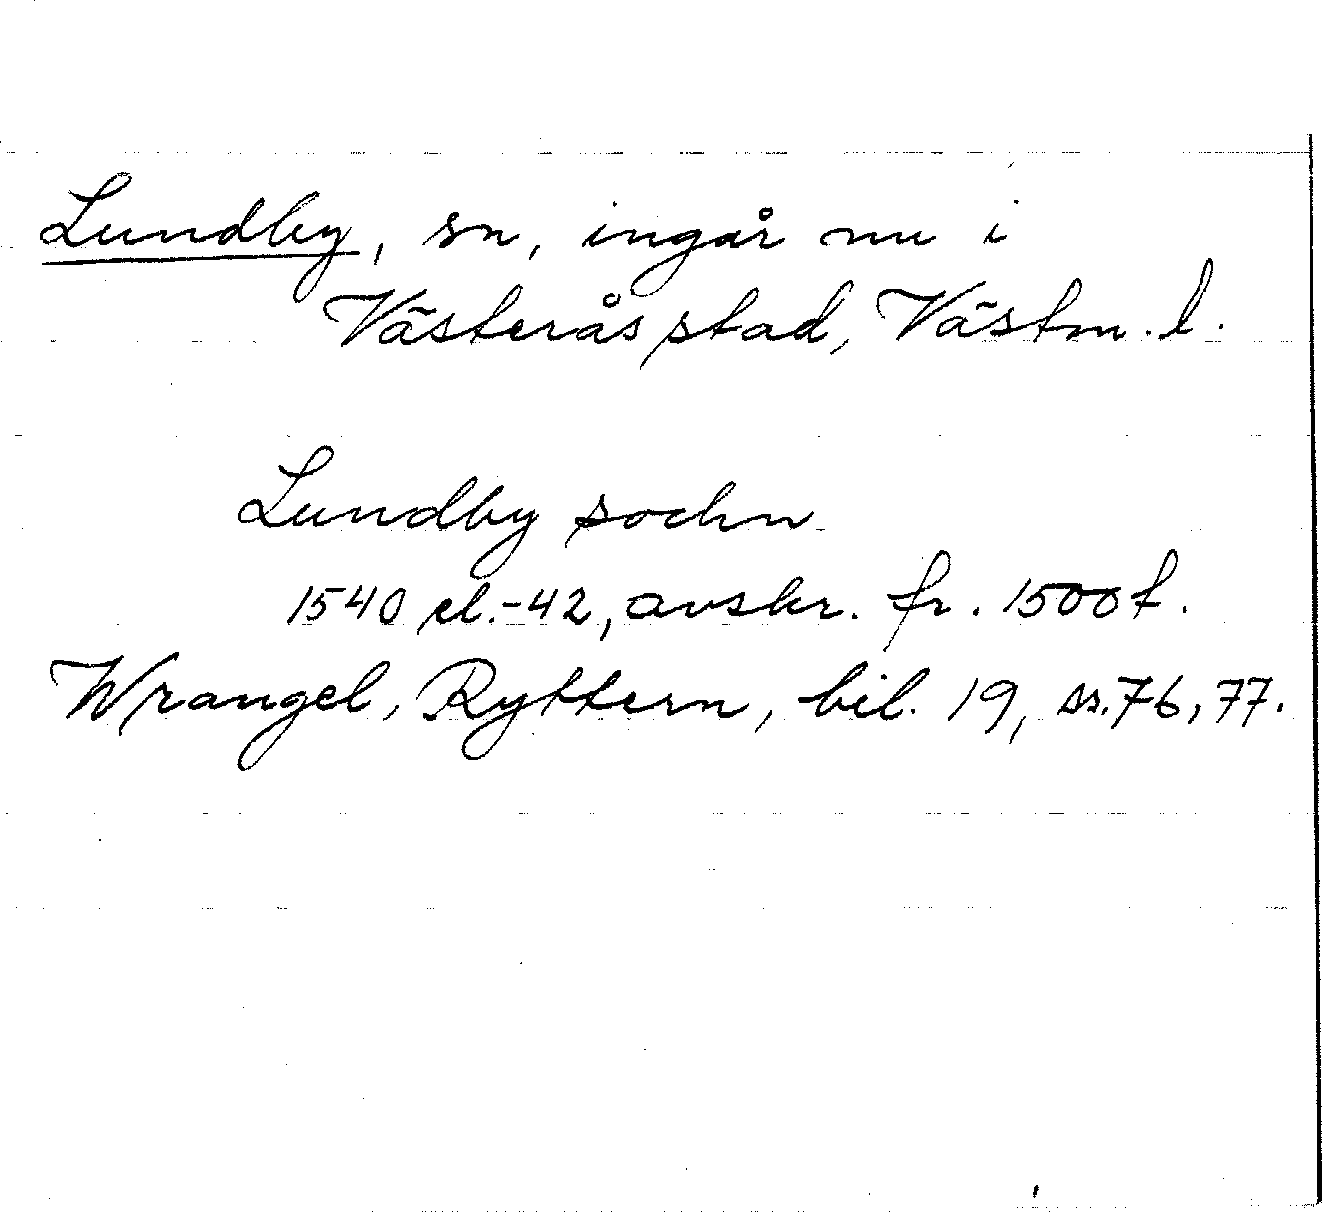 Lundby, sn, ingår nu i
Västerås stad, Västm. l.
Lundby sochn
1540 el.-42, avskr. fr. 1500t.
Wrangel, Ryttern, bil. 19, ss. 76, 77.